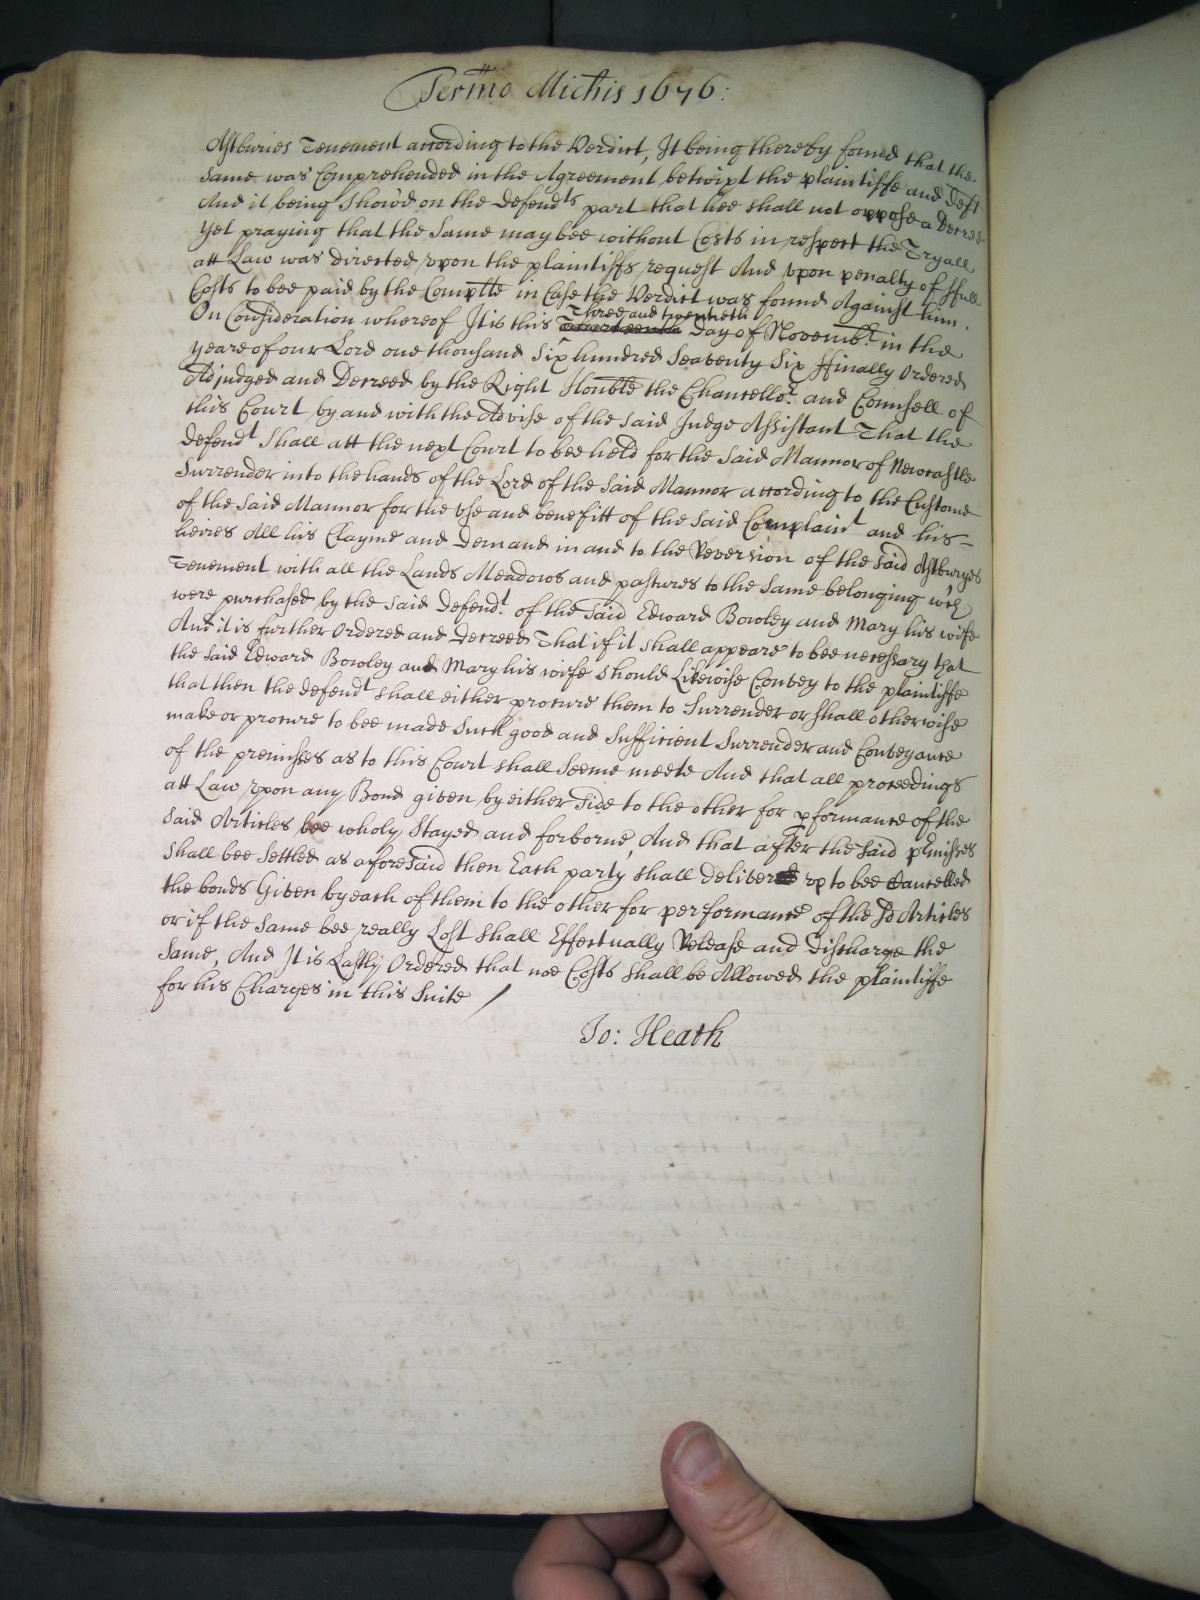 Termo Michis 1676:
Astburies Tenement according to the Verdict, It being thereby found that the
same was Comprehended in the Agreement betwixt the plaintiffe and Deft
And it being Show'd on the Defendts part that hee shall not oppose a Decree
yet praying that the Same may bee without Costs in respect the Tryall
att Law was directed upon the plaintiffs request And upon penalty of ffull
Costs to bee paid by the Complte in Case the Verdict was found Against him.
On Consideration whereof It is this Three and twentieth Day of Novembr. in the
yeare of our Lord one thousand Six hundred Seaventy Six ffinally Ordered
Adjudged and Decreed by the Right Honble the Chancellor. and Counsell of
this Court by and with the Advise of the said Judge Assistant That the
Defendt Shall att the next Court to bee held for the Said Mannor of Newcastle
Surrender into the hands of the Lord of the Said Mannor according to the Custome
of the Said Mannor for the Use and benefitt of the Said Complaint and his
heires All his Clayme and Demand in and to the Reversion of the said Astburyes
Tenement with all the Lands Meadows and pastures to the Same belonging wch
were purchased by the Said Defendt. of the Said Edward Bowley and Mary his wife
And it is further Ordered and Decreed That if it shall appeare to bee necessary that
the Said Edward Bowley and Mary his wife should Likewise Convey to the plaintiffe
that then the defendt shall either procure them to Surrender or shall otherwise
make or procure to bee made Such good and Sufficient Surrender and Conveyance
of the premisses as to this Court shall Seeme meete And that all proceedings
att Law upon any Bond given by either Side to the other for pformance of the
said Articles bee wholy Stayed and forborne, And that after the Said pmisses
Shall bee Settled as aforesaid then Each party shall deliver up to bee Cancelled
the bonds Given by each of them to the other for performance of the sd Articles
or if the Same bee really Lost shall Effectually Release and Discharge the
Same, And It is Lastly Ordered that noe Costs Shall be Allowed the plaintiffe
for his Charges in this Suite /
Jo: Heath